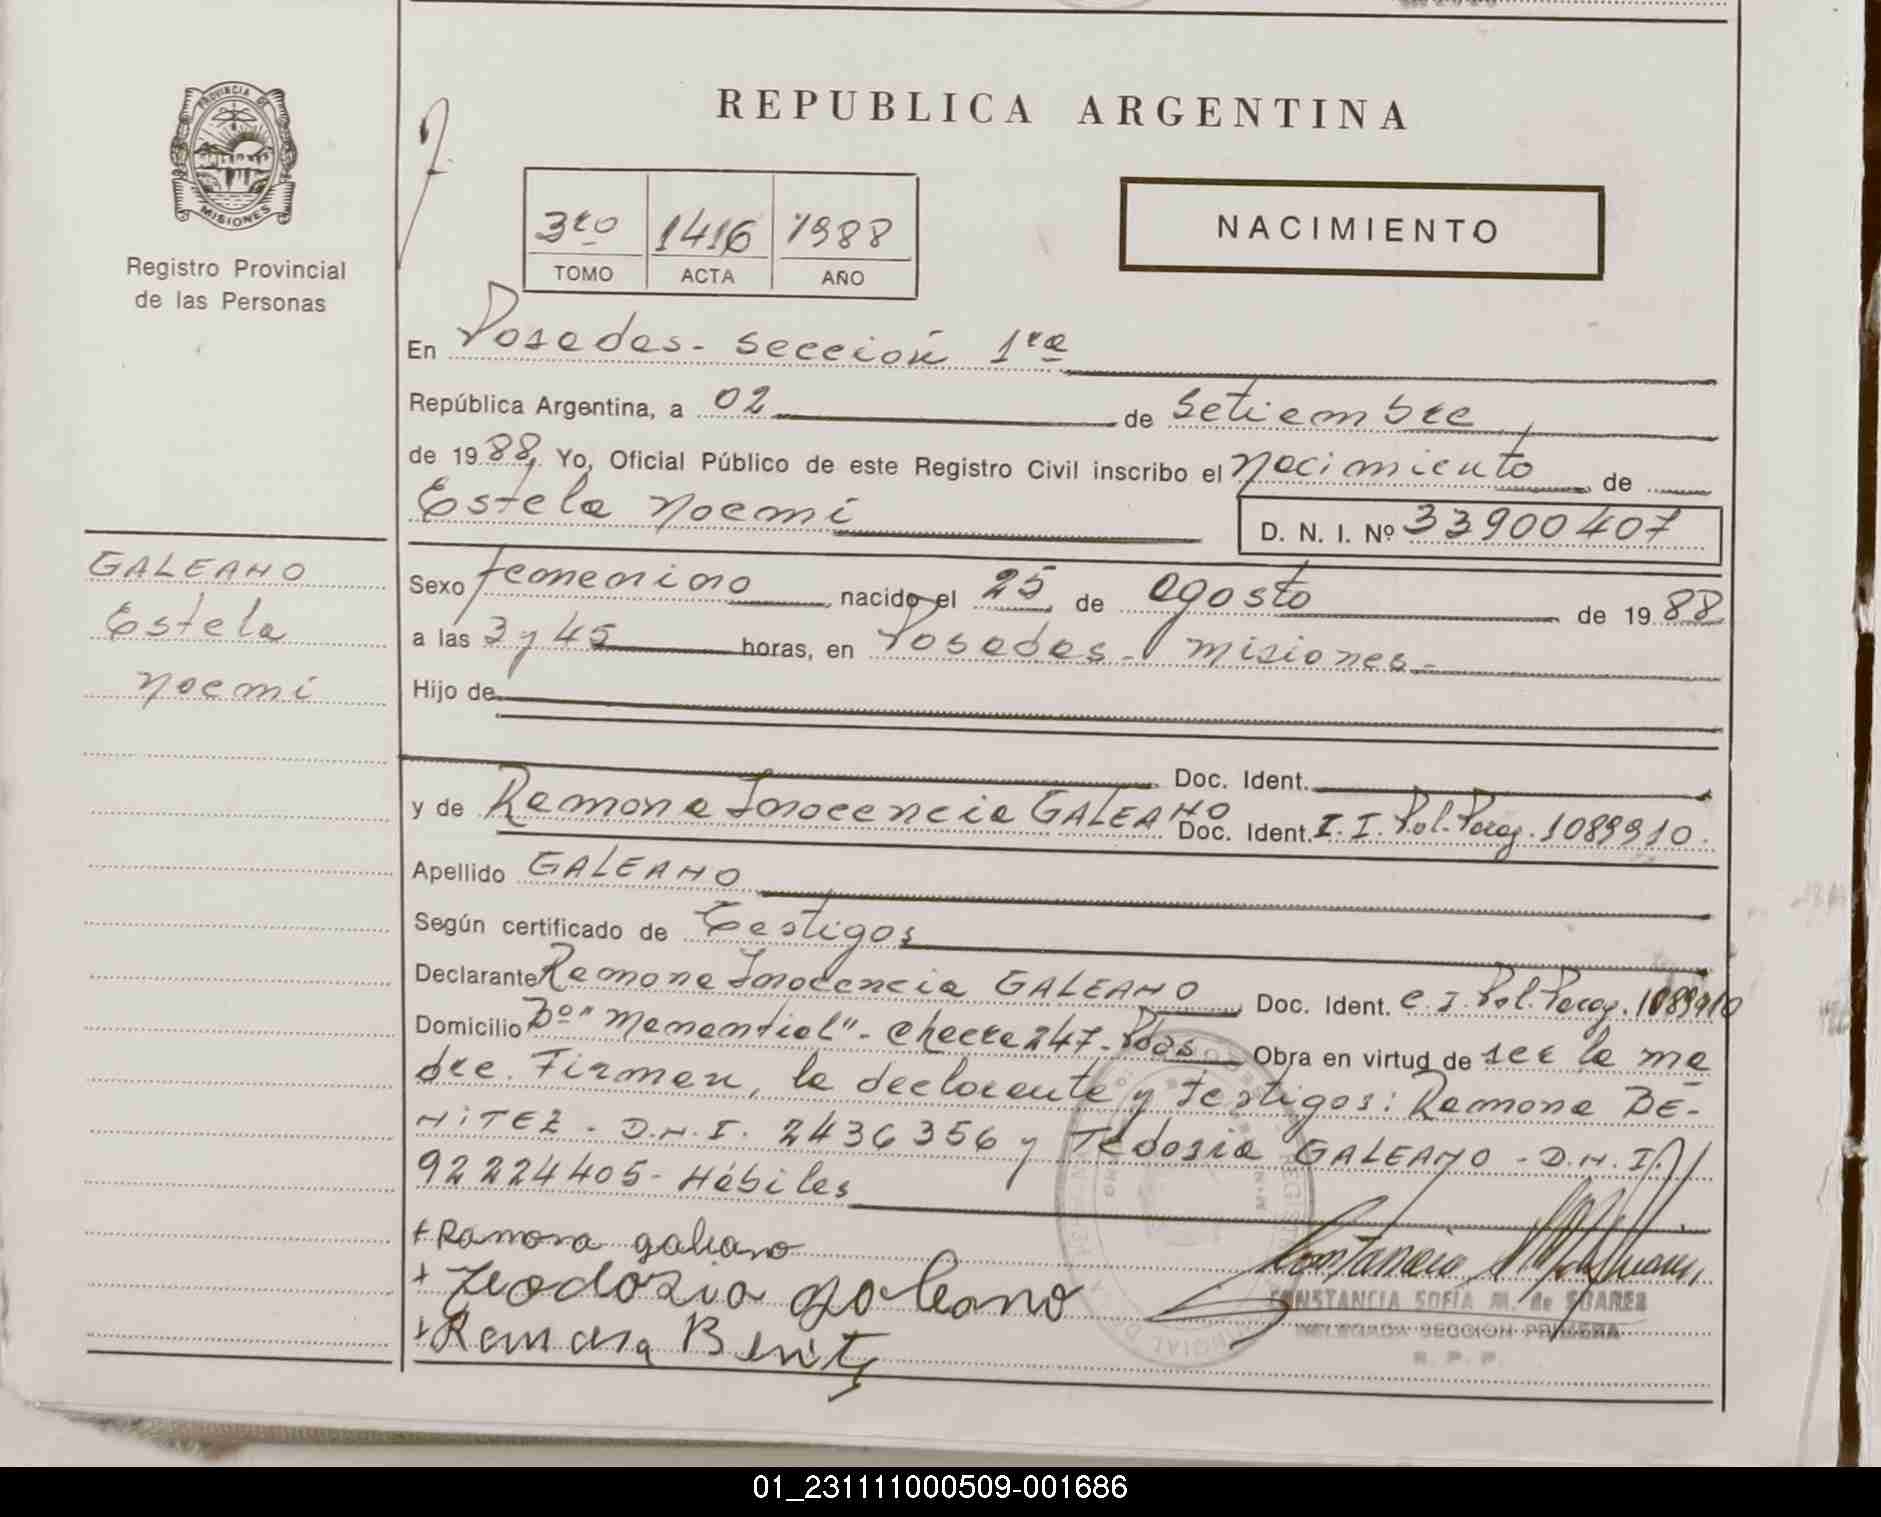 PROVINCIA DE
MISIONES
Registro Provincial
de las Personas
REPUBLICA ARGENTINA
3ro 1416 1988
TOMO ACTA AÑO
NACIMIENTO
En Posadas - sección 1ra
República Argentina, a 02 de Setiembre
de 1988, Yo, Oficial Público de este Registro Civil inscribo el nacimiento de
Estela Noemi
D. N. I. Nº 33900407
GALEANO
Estela
Noemi
Sexo femenino nacido el 25 de agosto de 1988
a las 3 y 45 horas, en Posadas - Misiones -
Hijo de
Doc. Ident.
y de Ramona Inocencia GALEANO Doc. Ident. I. I. Pol. Parag. 1089910.
Apellido GALEANO
Según certificado de Testigos
Declarante Ramona Inocencia GALEANO Doc. Ident. C. I. Pol. Parag. 1089910
Domicilio Bº "Manantial" - Chacra 247 - Pdas Obra en virtud de ser la ma
dre. Firman, la declarante y testigos: Ramona BE-
NITEZ - D.N.I. 2436356 y Tedosia GALEANO - D.N.I.
92224405 - Hábiles
+ Ramona galeano
+ Teodosia galeano
+ Ramona Benitz
CONSTANCIA SOFIA M. de SUAREZ
DELEGADA SECCION PRIMERA
R. P. P.
01_231111000509-001686